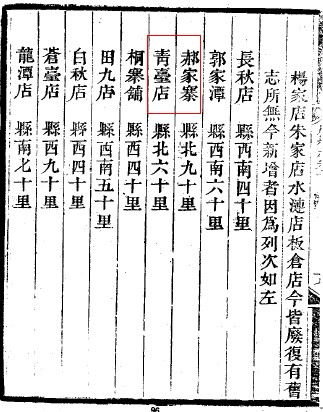 楊家店朱家店水漣店板倉店今皆廢復有舊
志所無今新增者因為列次如左
長秋店 縣西南四十里
郭家潭 縣西南六十里
郝家寨 縣北九十里
青臺店 縣北六十里
桐樂舖 縣西四十里
田九店 縣西南五十里
白秋店 縣西四十里
蒼臺店 縣西九十里
龍潭店 縣南七十里